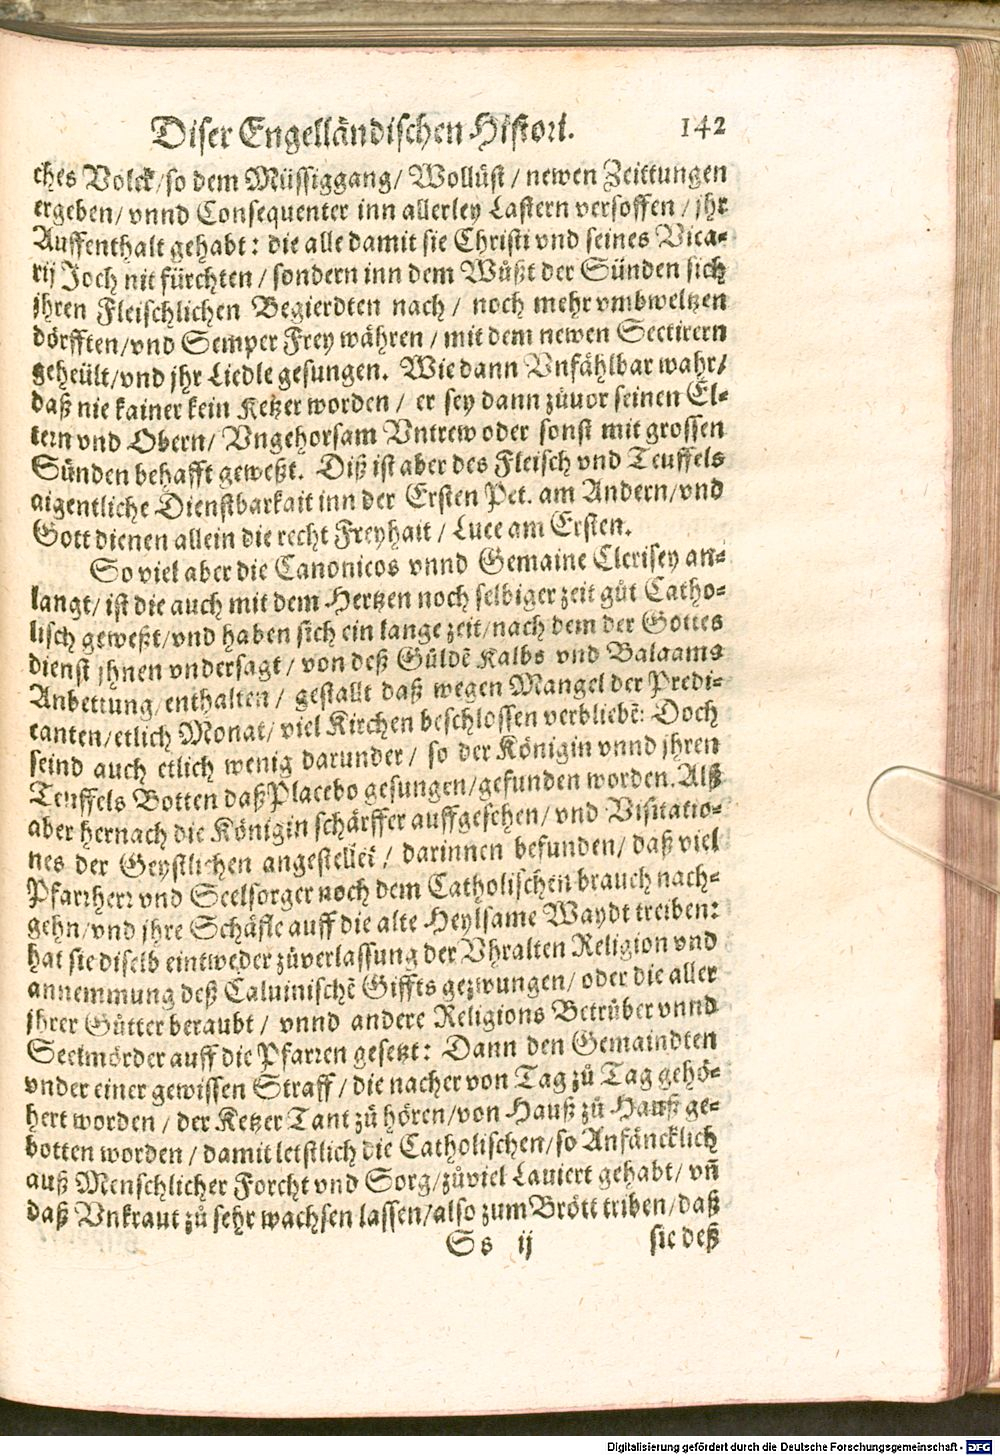 Diser Engelländischen Histori. 142
ches Volck/so dem Müssiggang/ Wollüst / newen Zeittungen
ergeben/ vnnd Consequenter inn allerley Lastern versoffen / jhr
Auffenthalt gehabt: die alle damit sie Christi vnd seines Vica-
rij Joch nit fürchten / sondern inn dem Wůßt der Sünden sich
jhren Fleischlichen Begierdten nach / noch mehr vmbweltzen
dörfften/vnd Semper Frey währen / mit dem newen Sectirern
geheült/vnd jhr Liedle gesungen. Wie dann Vnfählbar wahr/
daß nie kainer kein Ketzer worden / er sey dann züuor seinen El-
tern vnd Obern/ Vngehorsam Vntrew oder sonst mit grossen
Sünden behafft geweßt. Diß ist aber des Fleisch vnd Teuffels
aigentliche Dienstbarkait inn der Ersten Pet. am Andern/vnd
Gott dienen allein die recht Freyhait / Luce am Ersten.
So viel aber die Canonicos vnnd Gemaine Clerisey an-
langt/ ist die auch mit dem Hertzen noch selbiger zeit gůt Catho-
lisch geweßt/vnd haben sich ein lange zeit/nach dem der Gottes
dienst jhnen vndersagt / von deß Güldē Kalbs vnd Balaams
Anbettung/enthalten / gestallt daß wegen Mangel der Predi-
canten/etlich Monat/ viel Kirchen beschlossen verbliebē: Doch
seind auch etlich wenig darunder / so der Königin vnnd jhren
Teuffels Botten daß Placebo gesungen/gefunden worden. Alß
aber hernach die Königin schärffer auffgesehen/ vnd Visitatio-
nes der Geystlichen angestellet / darinnen befunden/ daß viel
Pfarrherr vnd Seelsorger noch dem Catholischen brauch nach-
gehn/vnd jhre Schäfle auff die alte Heylsame Waydt treiben:
hat sie diselb eintweder züverlassung der Vhralten Religion vnd
annemmung deß Caluinischē Giffts gezwungen/ oder die aller
jhrer Gůtter beraubt / vnnd andere Religions Betrüber vnnd
Seelmörder auff die Pfarren gesetzt: Dann den Gemaindten
vnder einer gewissen Straff / die nacher von Tag zů Tag gehö-
hert worden / der Ketzer Tant zů hören/von Hauß zů Hauß ge-
botten worden / damit letstlich die Catholischen/so Anfäncklich
auß Menschlicher Forcht vnd Sorg/zůviel Lauiert gehabt/ vn̄
daß Vnkraut zů sehr wachsen lassen/also zum Brött triben/daß
Ss ij sie deß
Digitalisierung gefördert durch die Deutsche Forschungsgemeinschaft - DFG